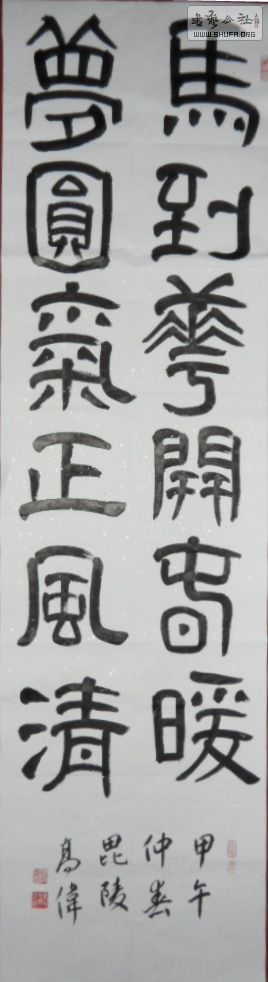 馬到華開春暖
夢圓氣正風清
甲午
仲春
毘陵
高偉
書藝公社
www.SHUFA.ORG